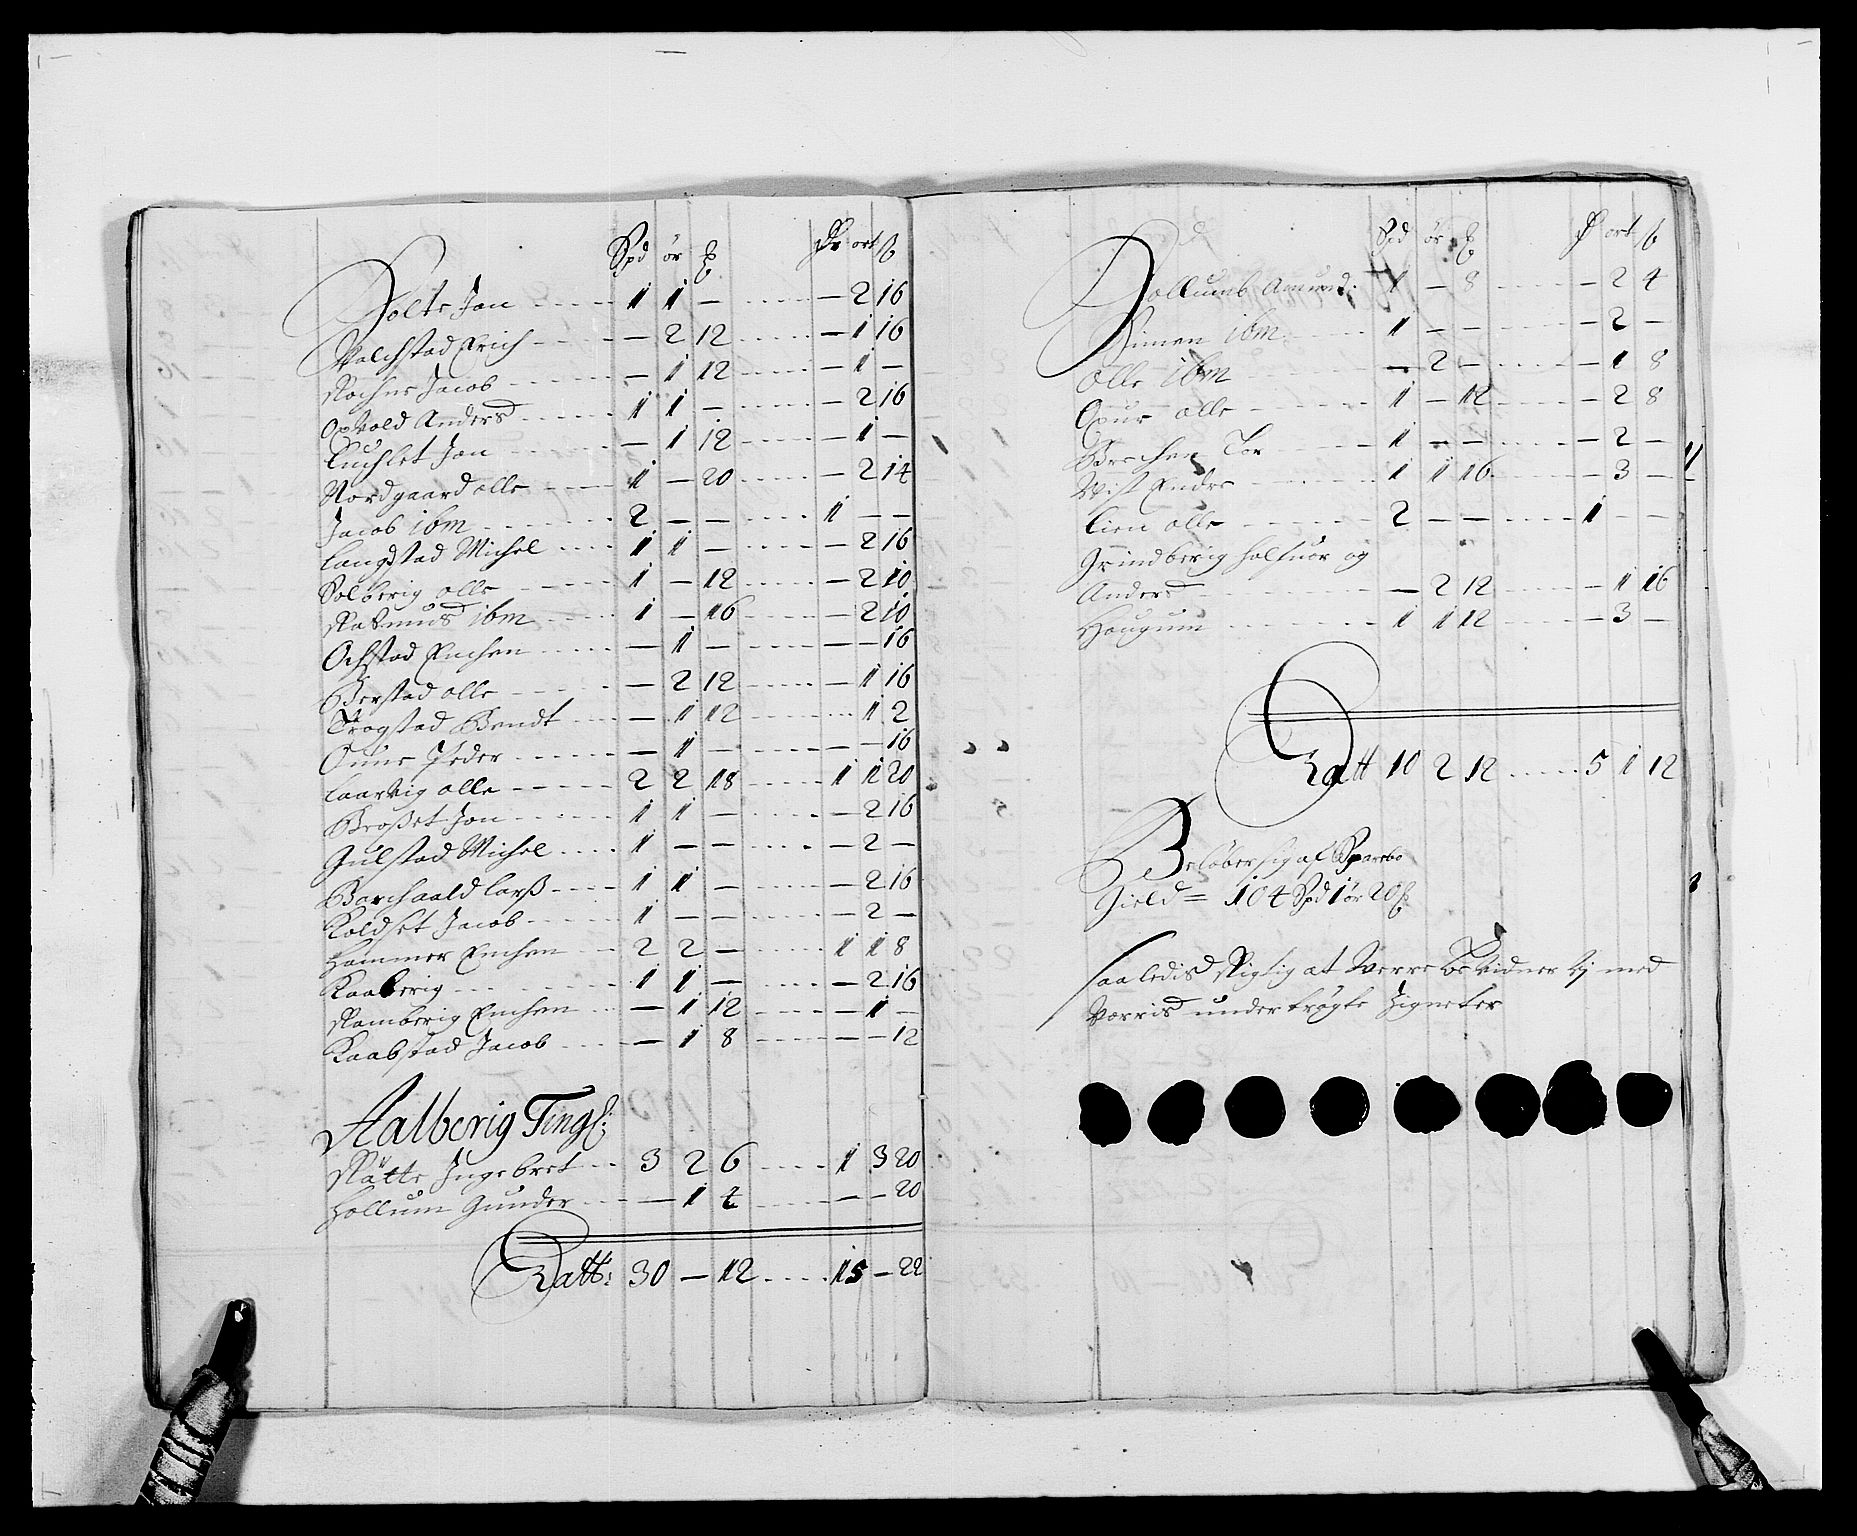 Spd ør ℔ Dr ort ß
Holte Jon 1 1 – – 2 16
Valchstad Erich – 2 12 – 1 16
Jacob – 1 12 – 1 –
Opvold Anders 1 1 – – 2 16
Luchlet Jon – 1 12 – 1 –
Nordgaard olle 1 – 20 – 2 14
Jacob ibm 2 – – 1 – –
Langstad Michel 1 1 – – 2 16
Solberig olle 1 – 12 – 2 10
Rasmus ibm 1 – 16 – 2 10
Ochstad Enchen – 1 – – – 16
Berstad olle – 2 12 – 1 16
Trogstad Bendt – 1 12 1 2
Oune Peder – 1 – – – 16
Laarvig olle 2 2 18 1 1 20
Broset Jon 1 1 – – 2 16
Gulstad Michel 1 – – – 2 –
Barchaald Larß 1 1 – – 2 16
Koldset Jacob 1 – – – 2 –
Hammer Enchen 2 2 – 1 1 8
Kaaberig 1 1 – – 2 16
Ramberig Enchen – 1 12 – 1 –
Kaabstad Jacob – 1 8 – – 12
Aalberig Tingl:
Røtte Ingebret 3 2 6 1 3 20
Hollum Gunder – 1 4 – – 20
Latt: 30 – 12 15 – 22
Spd ør ℔ ort ß
Hollumb Amund: 1 – 8 – 2 4
Simen ibm 1 – – – 2 –
Olle ibm – 2 – – 1 8
Opur olle 1 – 12 – 2 8
Brechen Tor 1 – – – 2 –
Vist Endre 1 1 16 – 3 –
Lien olle 2 – – 1 – –
Grindberig Halfuor og
Anders – 2 12 – 1 16
Haugum 1 1 12 – 3 –
Latt 10 2 12 5 1 12
Beløber sig af Sparebo
Gield = 104 Spd 1 ør 20 ℔
Saaledis Rigtig at Verre bevidner vj med
Vorris undertrøgte Zigneter